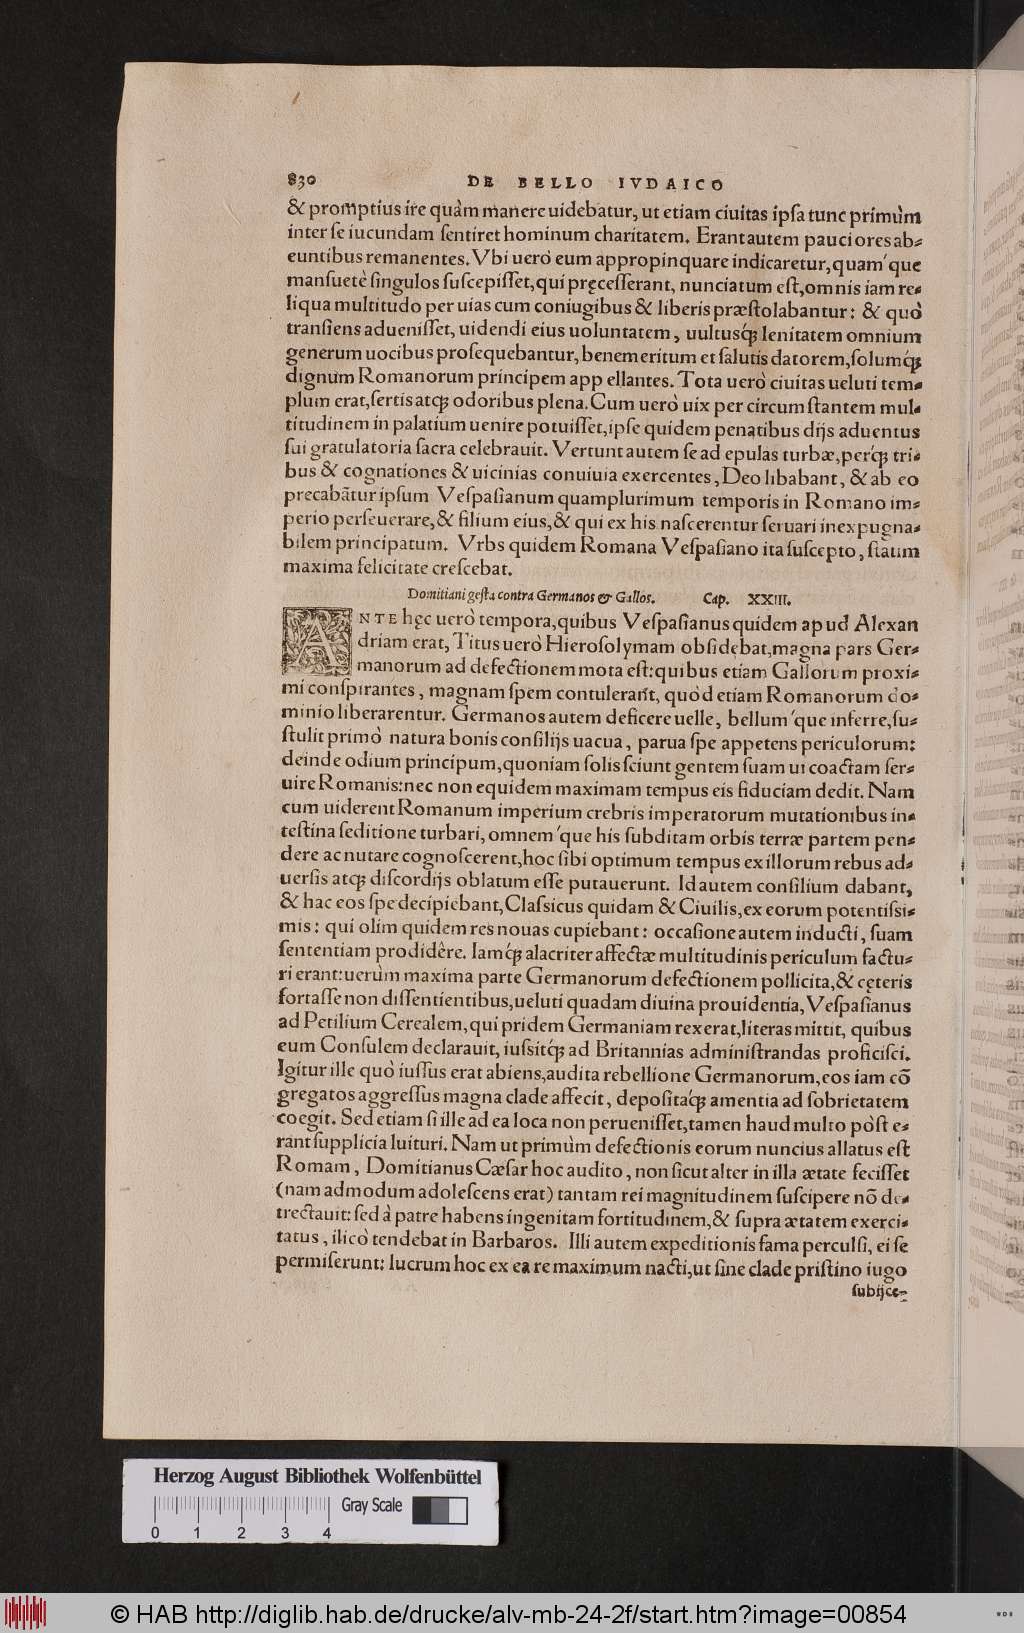 830 DE BELLO IVDAICO
& promptius ire quàm manere uidebatur, ut etiam ciuitas ipsa tunc primùm
inter se iucundam sentiret hominum charitatem. Erant autem pauciores ab⸗
euntibus remanentes. Vbi uerò eum appropinquare indicaretur, quam'que
mansuetè singulos suscepisset, qui pręcesserant, nunciatum est, omnis iam re⸗
liqua multitudo per uias cum coniugibus & liberis præstolabantur: & quò
transiens aduenisset, uidendi eius uoluntatem, uultusq́; lenitatem omnium
generum uocibus prosequebantur, benemeritum et salutis datorem, solumq́;
dignum Romanorum principem app ellantes. Tota uerò ciuitas ueluti tem⸗
plum erat, sertis atq; odoribus plena. Cum uerò uix per circum stantem mul⸗
titudinem in palatium uenire potuisset, ipse quidem penatibus dijs aduentus
sui gratulatoria sacra celebrauit. Vertunt autem se ad epulas turbæ, perq́; tri⸗
bus & cognationes & uicinias conuiuia exercentes, Deo libabant, & ab eo
precabãtur ipsum Vespasianum quamplurimum temporis in Romano im⸗
perio perseuerare, & filium eius, & qui ex his nascerentur seruari inexpugna⸗
bilem principatum. Vrbs quidem Romana Vespasiano ita suscepto, statim
maxima felicitate crescebat.
Domitiani gesta contra Germanos & Gallos. Cap. XXIII.
ANTE hęc uerò tempora, quibus Vespasianus quidem apud Alexan
driam erat, Titus uerò Hierosolymam obsidebat, magna pars Ger⸗
manorum ad defectionem mota est: quibus etiam Gallorum proxi⸗
mi conspirantes, magnam spem contulerant, quòd etiam Romanorum do⸗
minio liberarentur. Germanos autem deficere uelle, bellum'que inferre, su⸗
stulit primò natura bonis consilijs uacua, parua spe appetens periculorum:
deinde odium principum, quoniam solis sciunt gentem suam ui coactam ser⸗
uire Romanis: nec non equidem maximam tempus eis fiduciam dedit. Nam
cum uiderent Romanum imperium crebris imperatorum mutationibus in⸗
testina seditione turbari, omnem'que his subditam orbis terræ partem pen⸗
dere ac nutare cognoscerent, hoc sibi optimum tempus ex illorum rebus ad⸗
uersis atq; discordijs oblatum esse putauerunt. Id autem consilium dabant,
& hac eos spe decipiebant, Classicus quidam & Ciuilis, ex eorum potentissi⸗
mis: qui olim quidem res nouas cupiebant: occasione autem inducti, suam
sententiam prodidêre. Iamq́; alacriter affectæ multitudinis periculum factu⸗
ri erant: uerùm maxima parte Germanorum defectionem pollicita, & cęteris
fortasse non dissentientibus, ueluti quadam diuina prouidentia, Vespasianus
ad Petilium Cerealem, qui pridem Germaniam rexerat, literas mittit, quibus
eum Consulem declarauit, iussitq́; ad Britannias administrandas proficisci.
Igitur ille quò iussus erat abiens, audita rebellione Germanorum, eos iam cõ
gregatos aggressus magna clade affecit, depositaq́; amentia ad sobrietatem
coegit. Sed etiam si ille ad ea loca non peruenisset, tamen haud multo pòst e⸗
rant supplicia luituri. Nam ut primùm defectionis eorum nuncius allatus est
Romam, Domitianus Cæsar hoc audito, non sicut alter in illa ætate fecisset
(nam admodum adolescens erat) tantam rei magnitudinem suscipere nõ de⸗
trectauit: sed à patre habens ingenitam fortitudinem, & supra ætatem exerci⸗
tatus, ilicò tendebat in Barbaros. Illi autem expeditionis fama perculsi, ei se
permiserunt: lucrum hoc ex ea re maximum nacti, ut sine clade pristino iugo
subijce⸗
Herzog August Bibliothek Wolfenbüttel
Gray Scale
0 1 2 3 4
© HAB http://diglib.hab.de/drucke/alv-mb-24-2f/start.htm?image=00854